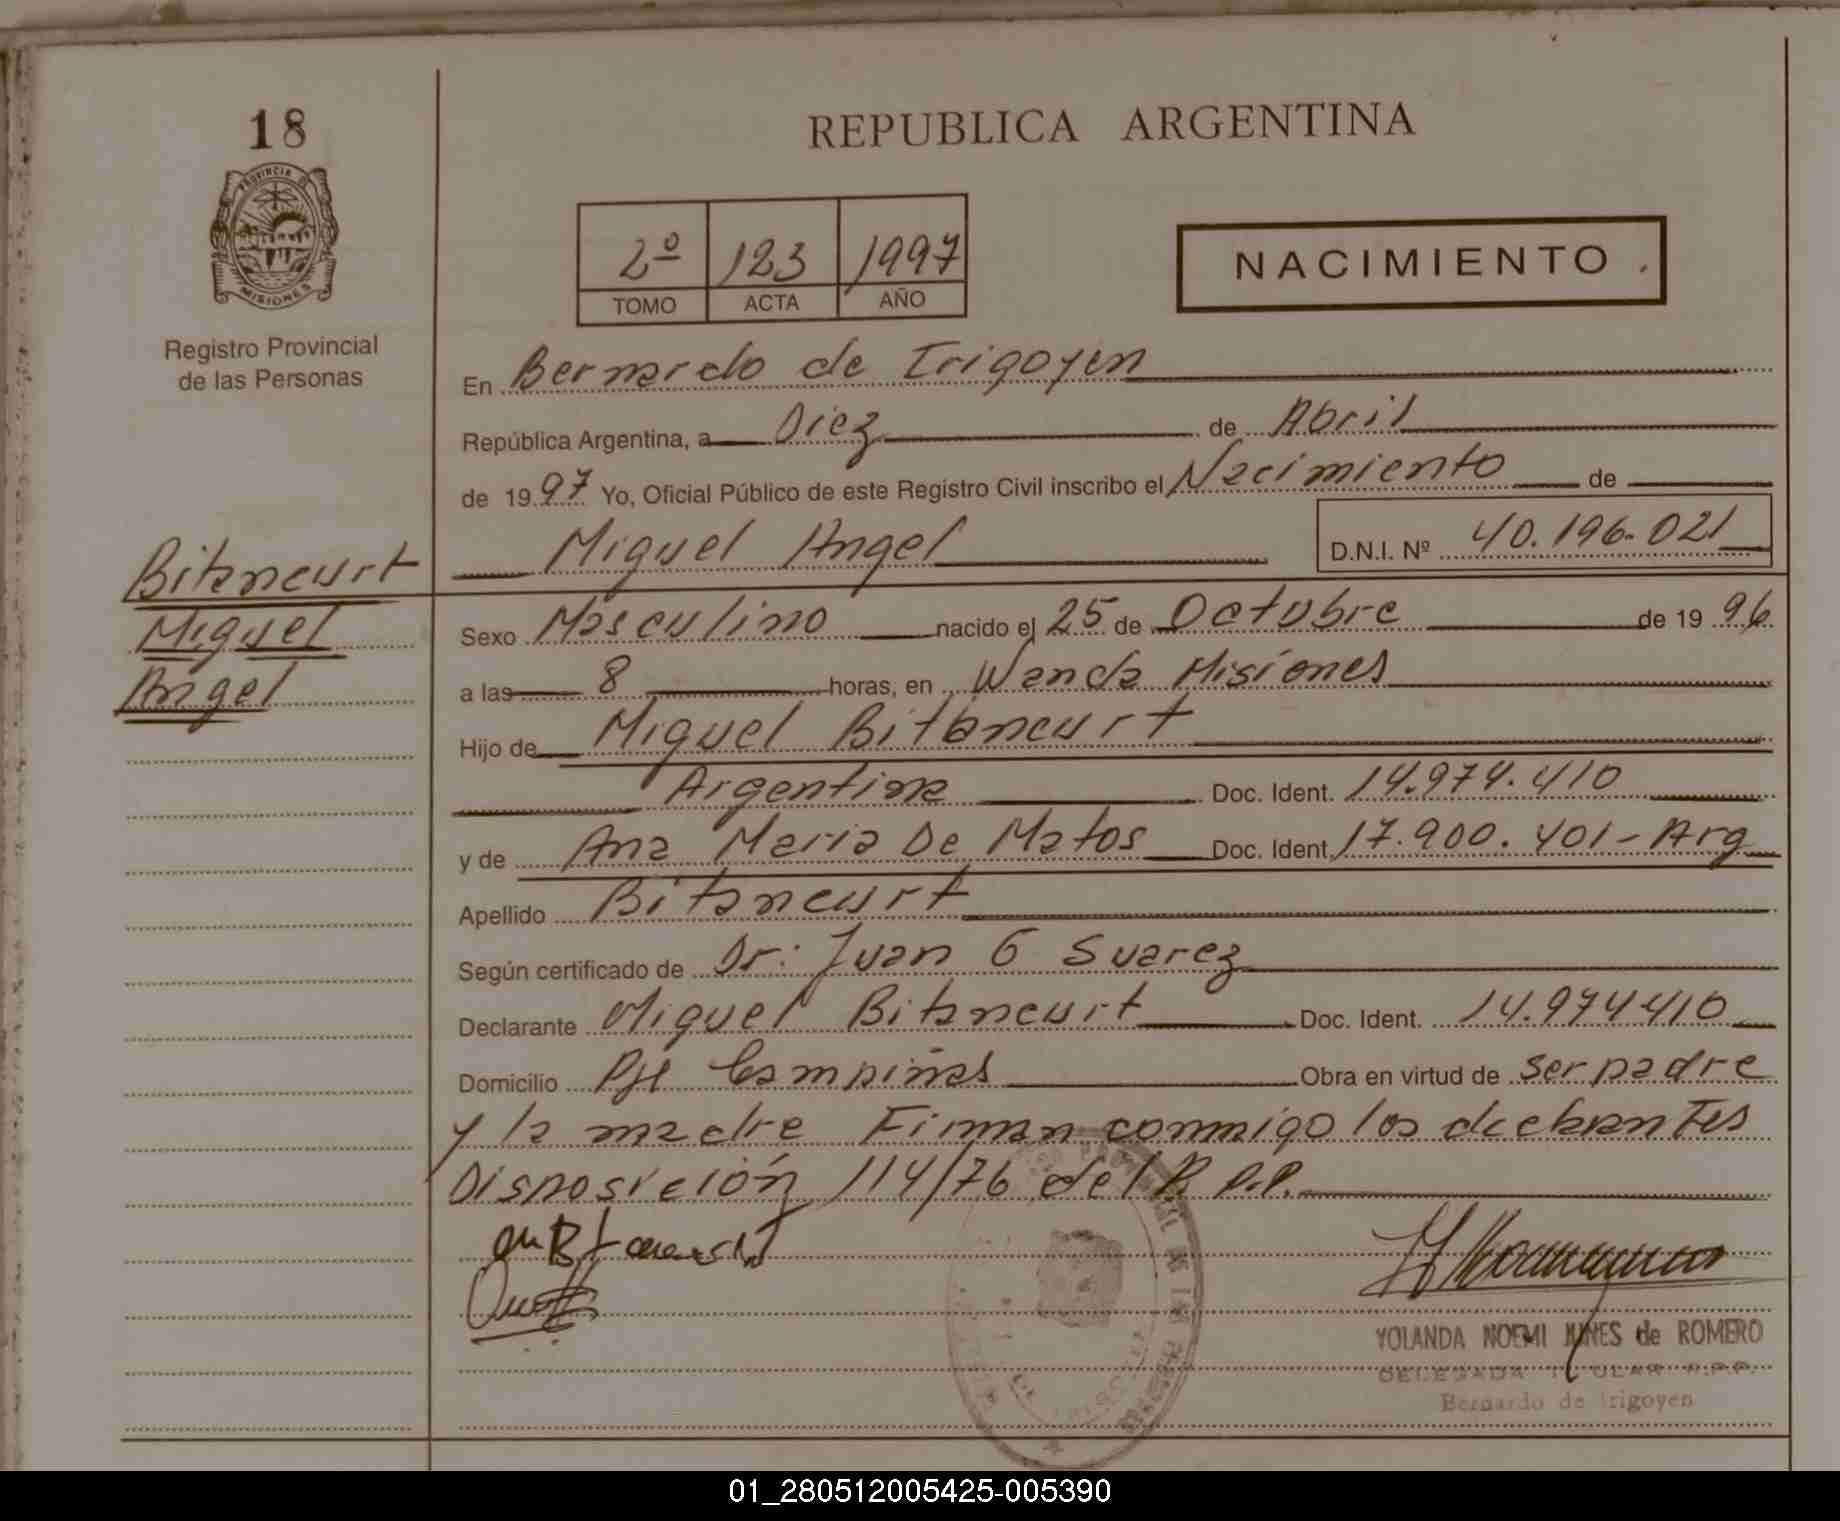 18
PROVINCIA D
MISIONES
Registro Provincial
de las Personas
REPUBLICA ARGENTINA
2º 123 1997
TOMO ACTA AÑO
NACIMIENTO
En Bernardo de Irigoyen
República Argentina, a Diez de Abril
de 1997 Yo, Oficial Público de este Registro Civil inscribo el Nacimiento de
Miguel Angel D.N.I. Nº 40.196.021
Bitancurt
Miguel
Angel
Sexo Masculino nacido el 25 de Octubre de 1996
a las 8 horas, en Wanda Misiones
Hijo de Miguel Bitancurt
Argentina Doc. Ident. 14.974.410
y de Ana Maria De Matos Doc. Ident. 17.900.401 - Arg
Apellido Bitancurt
Según certificado de Dr: Juan G Suarez
Declarante Miguel Bitancurt Doc. Ident. 14.974410
Domicilio Pje Campiñas Obra en virtud de ser padre
y la madre Firman conmigo los declarantes
Disposición 114/76 del R.P.P.
YOLANDA NOEMI de ROMERO
DELEGADA TITULAR R.P.P.
Bernardo de Irigoyen
01_280512005425-005390